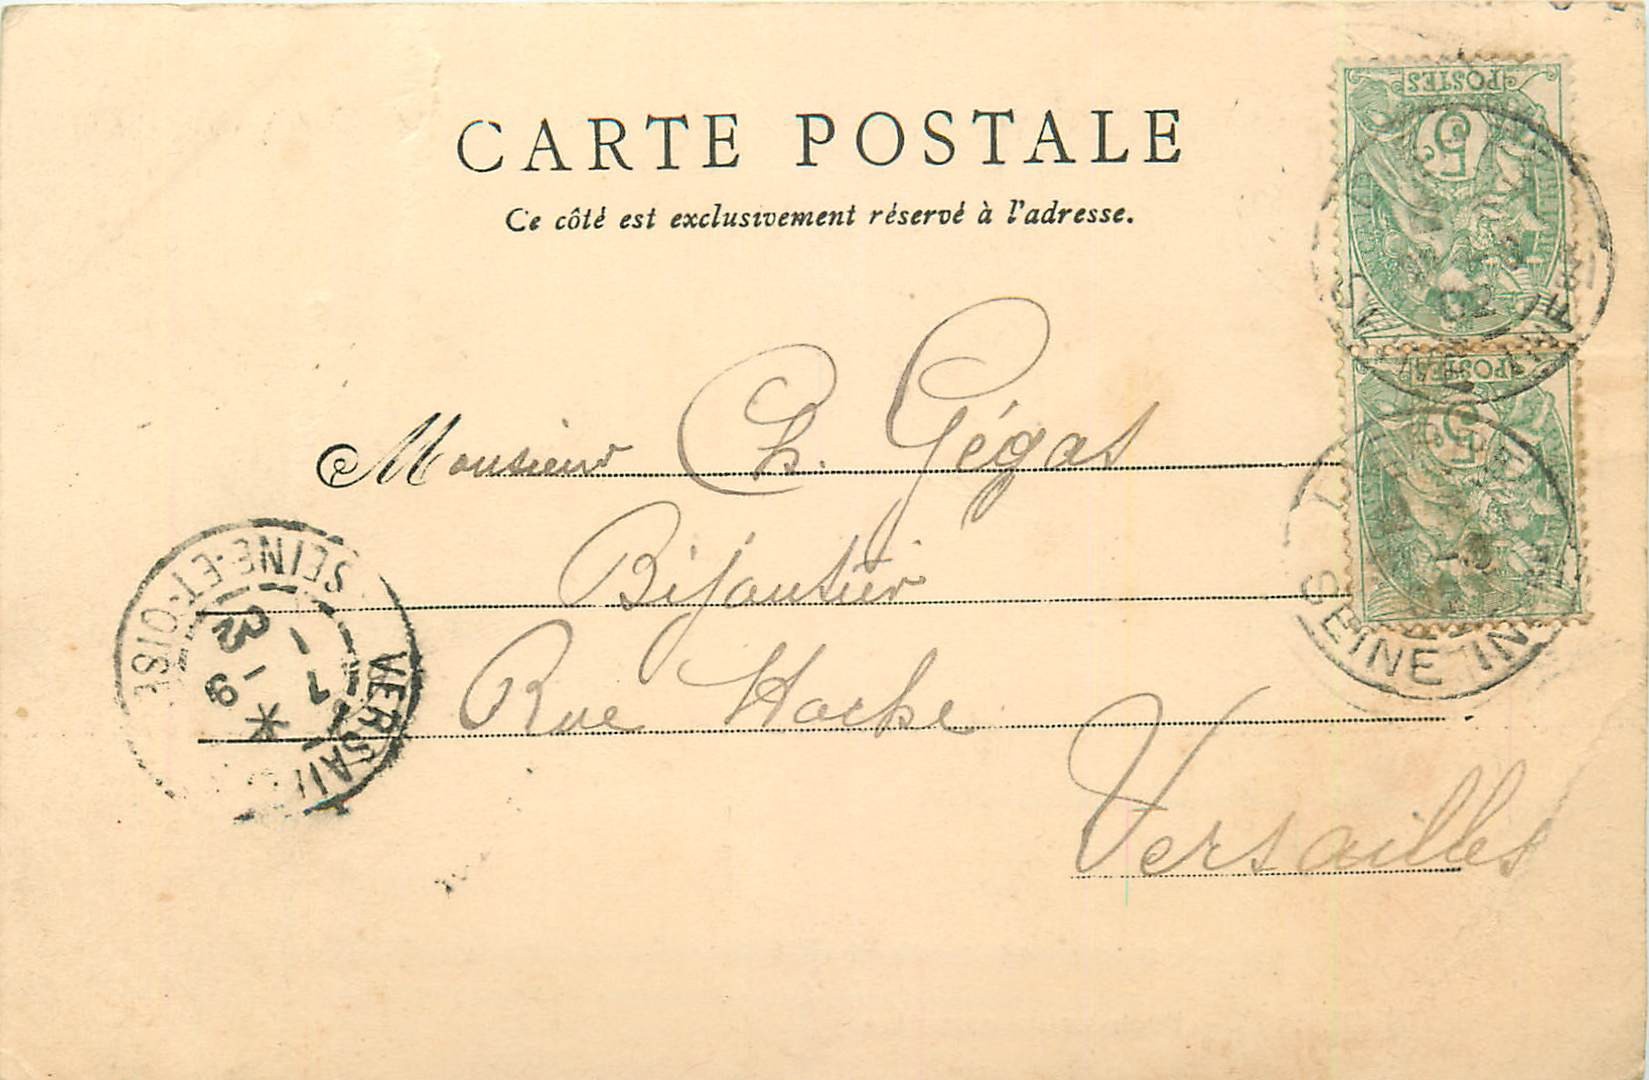 CARTE POSTALE
Ce côté est exclusivement réservé à l'adresse.
POSTES
5
02
POSTES
5
SEINE IN
Monsieur Ch. Gégas
Bijoutier
Rue Hoche
Versailles
VERSAILL
SEINE-ET-OISE